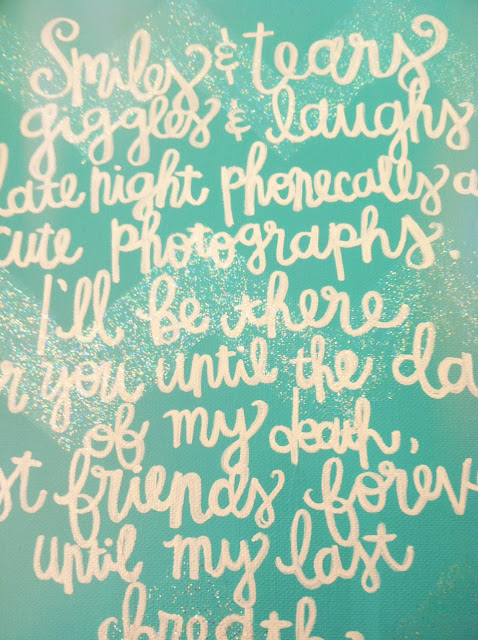 Smiles & tears
giggles & laughs
late night phonecalls a
cute photographs.
I'll be there
r you until the da
of my death,
st friends forev
until my last
breath